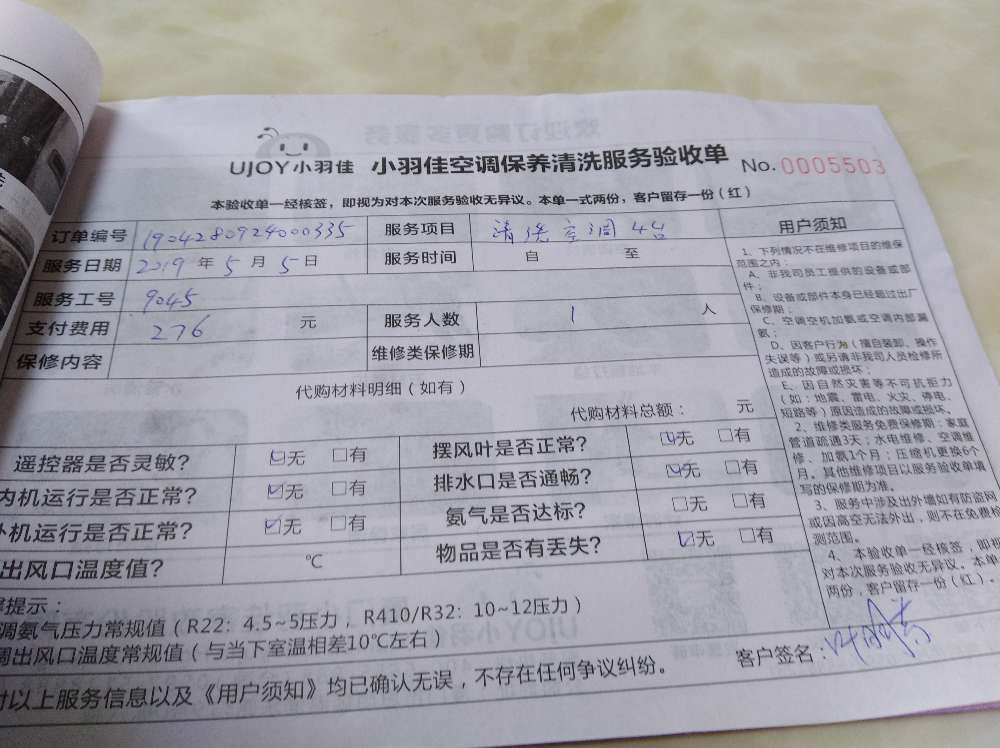 UJOY小羽佳 小羽佳空调保养清洗服务验收单 No. 0005503
本验收单一经核签，即视为对本次服务验收无异议。本单一式两份，客户留存一份（红）
订单编号 1904280924000335 服务项目 清洗空调4台
服务日期 2019 年 5 月 5 日 服务时间 自 至
服务工号 9045
支付费用 276 元 服务人数 1 人
保修内容 维修类保修期
代购材料明细（如有）
代购材料总额： 元
遥控器是否灵敏？ ☑无 □有 摆风叶是否正常？ ☑无 □有
内机运行是否正常？ ☑无 □有 排水口是否通畅？ ☑无 □有
外机运行是否正常？ ☑无 □有 氨气是否达标？ □无 □有
出风口温度值？ ℃ 物品是否有丢失？ ☑无 □有
提示：
调氨气压力常规值（R22：4.5~5压力，R410/R32：10~12压力）
调出风口温度常规值（与当下室温相差10℃左右）
对以上服务信息以及《用户须知》均已确认无误，不存在任何争议纠纷。
客户签名：
用户须知
1、下列情况不在维修项目的维保
范围之内：
A、非我司员工提供的设备或部
件；
B、设备或部件本身已经超过出厂
保修期；
C、空调空机加氨或空调内部漏
氨；
D、因客户行为（擅自装卸、操作
失误等）或另请非我司人员检修所
造成的故障或损坏；
E、因自然灾害等不可抗拒力
（如：地震、雷电、火灾、停电、
短路等）原因造成的故障或损坏。
2、维修类服务免费保修期：家庭
管道疏通3天；水电维修、空调维
修、加氨1个月；压缩机更换6个
月。其他维修项目以服务验收单填
写的保修期为准。
3、服务中涉及出外墙如有防盗网
或因高空无法外出，则不在免费检
测范围。
4、本验收单一经核签，即视
对本次服务验收无异议。本单
两份，客户留存一份（红）。